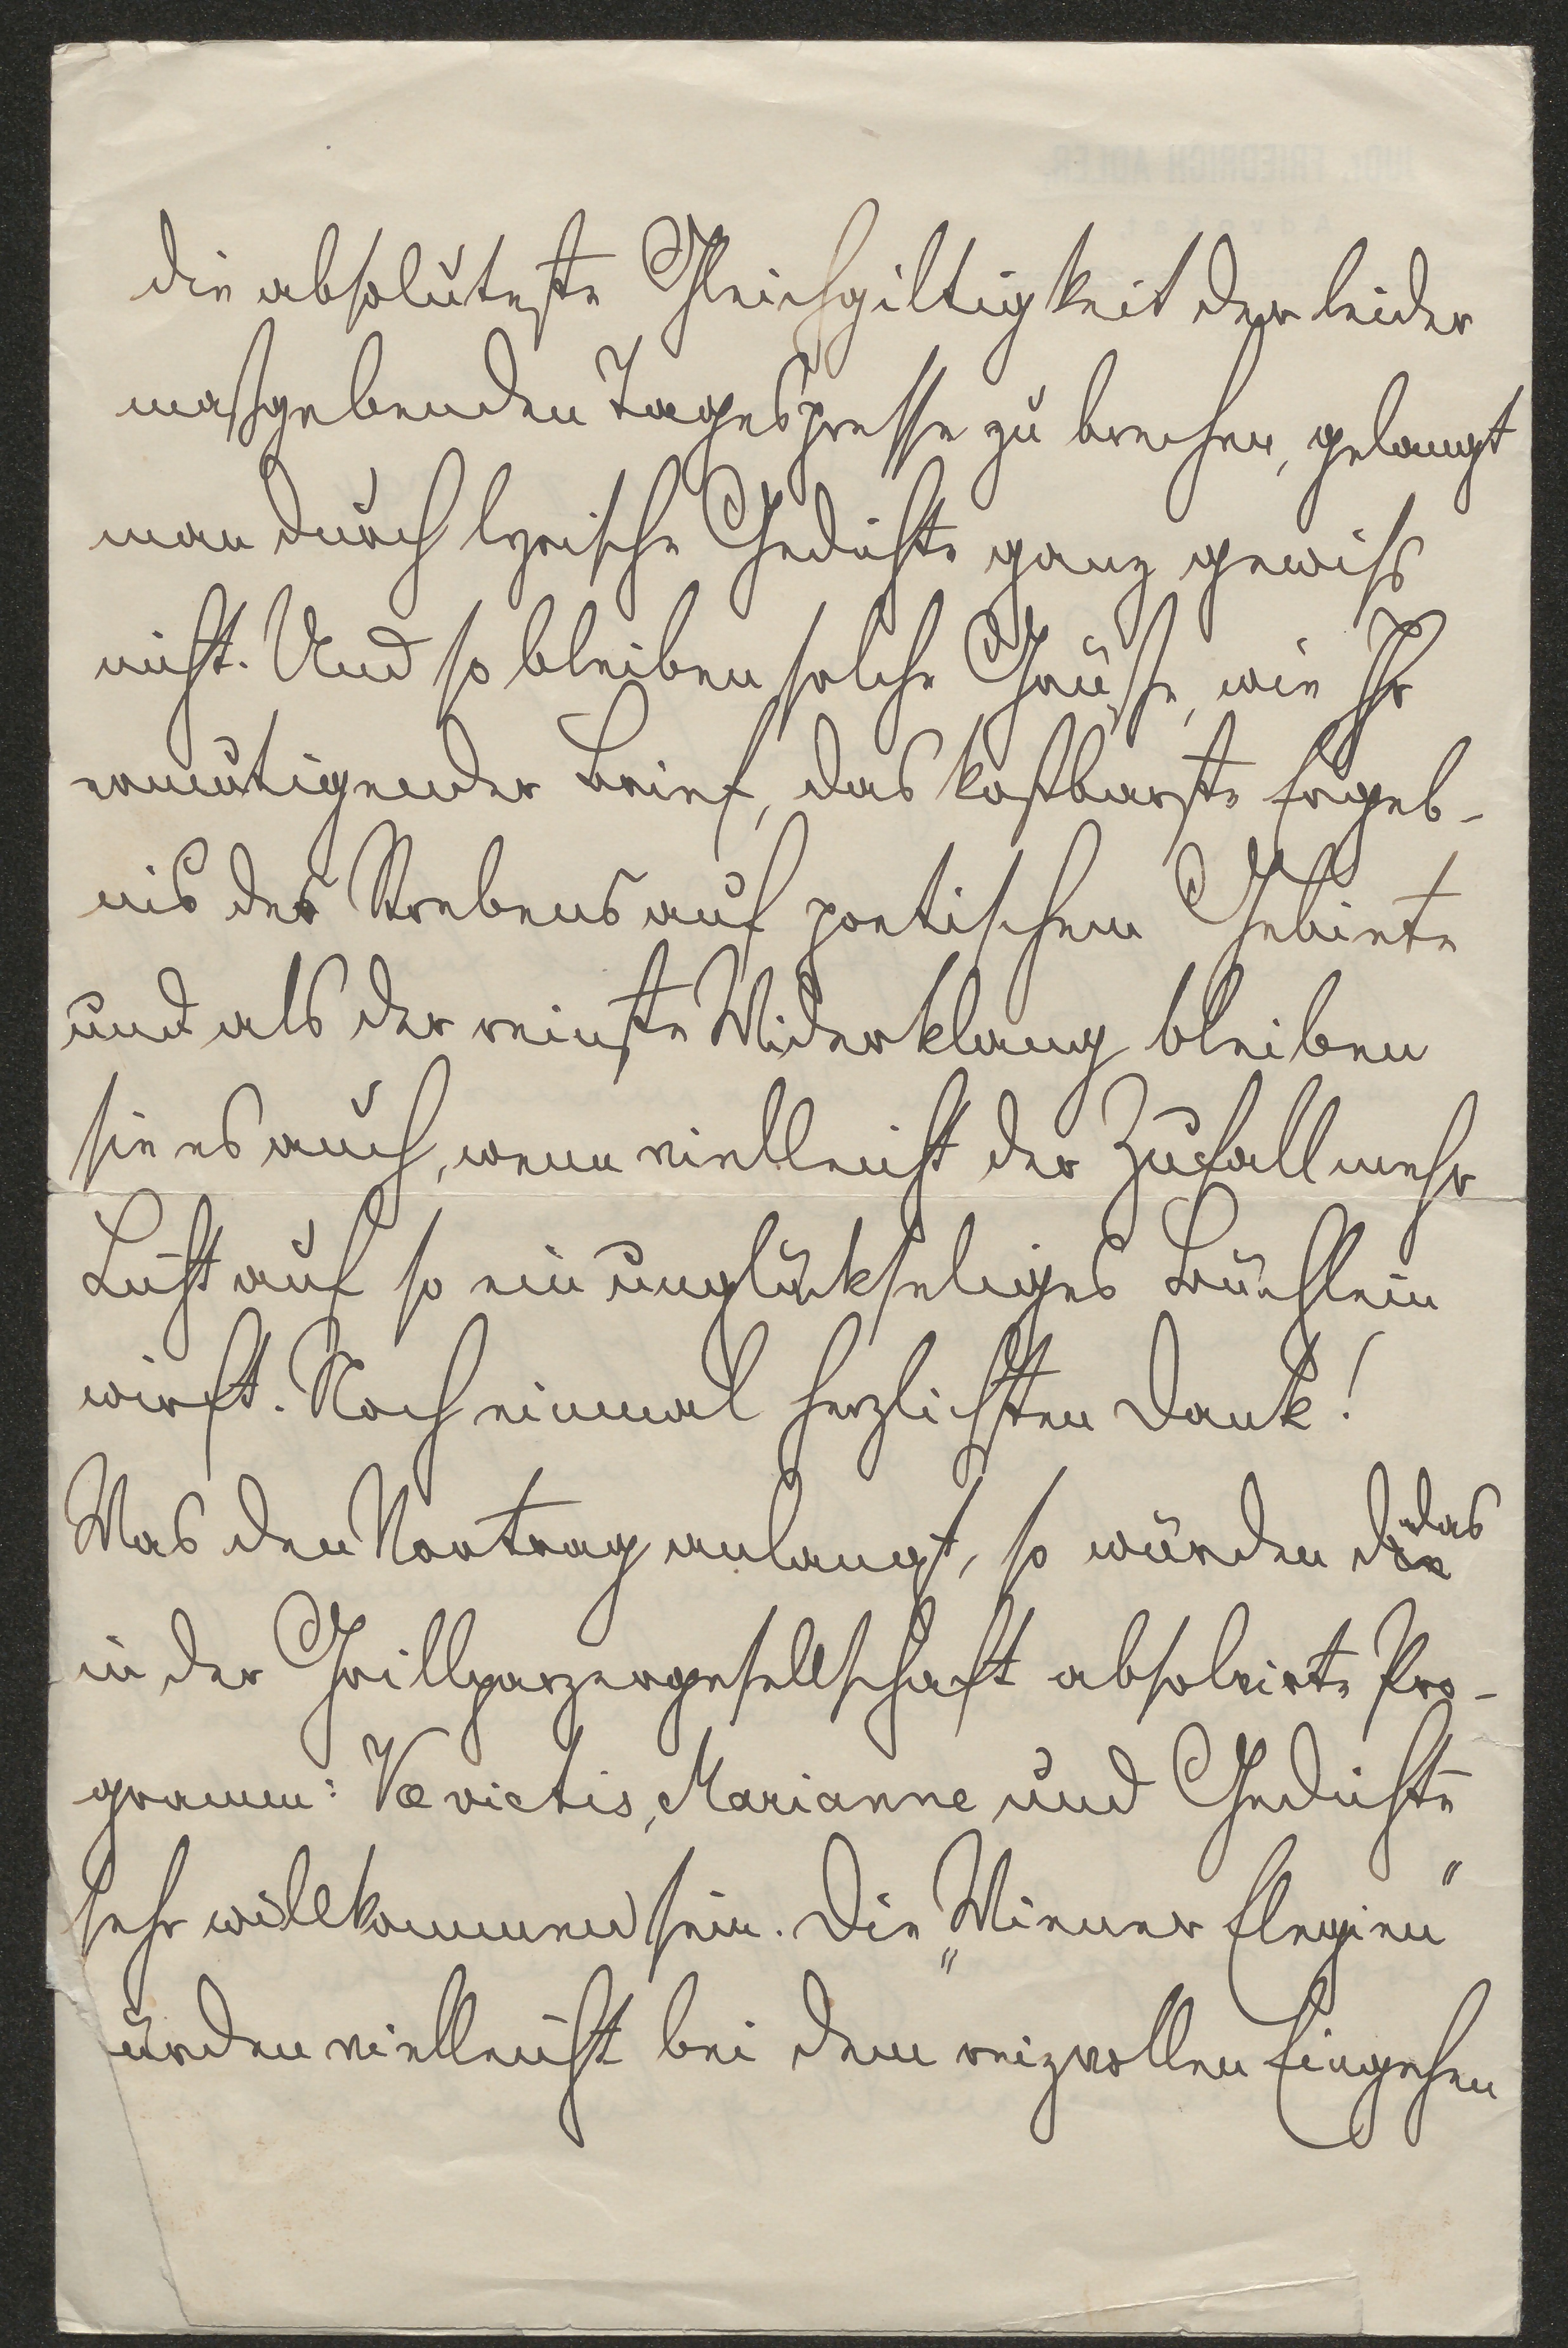 die absoluteste Gleichgiltigkeit der leider
maßgebenden Tagespresse zu brechen, gelangt
man durch lyrische Gedichte ganz gewiß
nicht. Und so bleiben solche Grüße, wie Ihr
ermutigender Brief, das kostbarste Ergeb-
nis des Strebens auf poetischem Gebiete
und als der reinste Widerklang bleiben
sie es auch, wenn vielleicht der Zufall mehr
Licht auf so ein unglückseliges Büchlein
wirft. Noch einmal herzlichsten Dank!
Was den Vortrag anlangt, so würden das
in der Grillparzergesellschaft absolvirte Pro-
gramm: Vae victis, Marianne und Gedichte
sehr willkommen sein. Die „Wiener Elegien"
ürden vielleicht bei dem reizvollen Eingehen